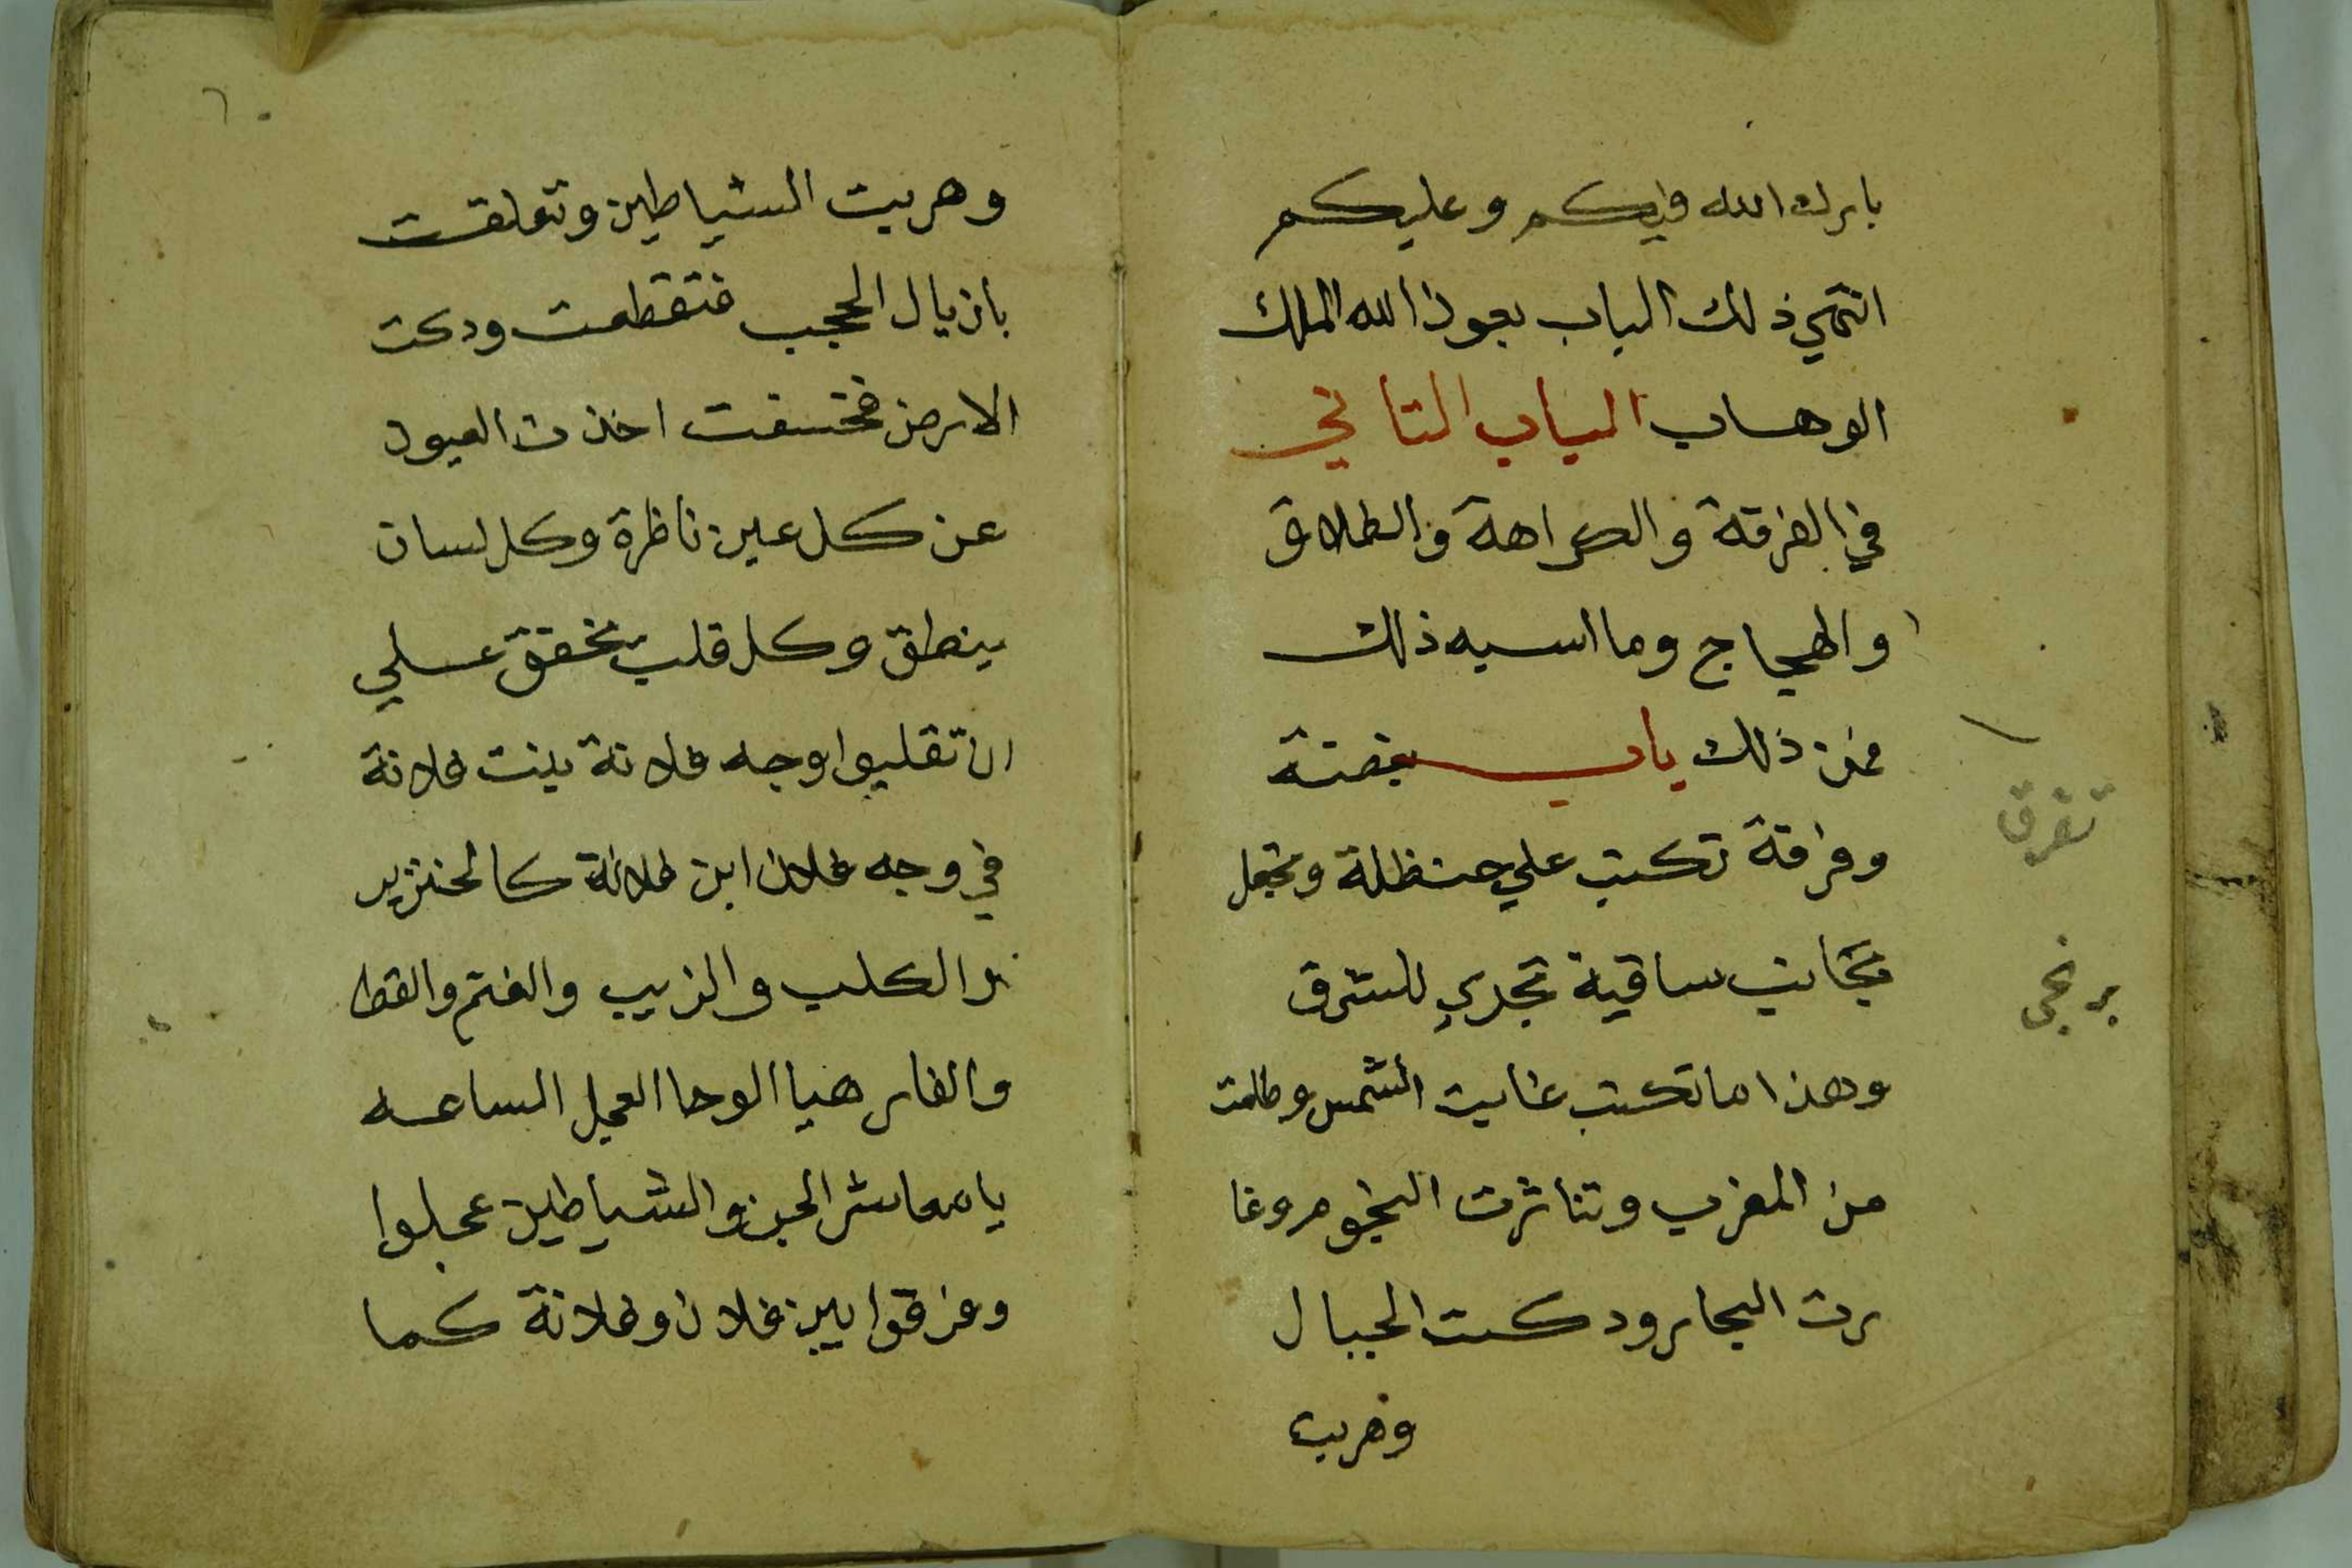 بارك الله فيكم وعليكم
انتهي ذلك الباب بعون الله الملك
الوهاب الباب التاني
في الفرقة والكراهة والطلاق
والهجاج وما اسبه ذلك
فمن ذلك باب بغضة
وفرقة تكتب علي حنظلة وتجعل
بجانب ساقية تجري للشرق
وهذا ما تكتب غابت الشمس وطلعت
من المغرب وتناثرت النجوم وغا
رت البحار ودكت الجبال
وهربت
تفرق
برنجى
٦٠
وهربت الشياطين وتعلقت
باذيال الحجب فتقطعت ودكت
الارض فخسفت اخذت العيون
عن كل عين ناظرة وكل لسان
ينطق وكل قلب يخفق علي
ان تقلبوا وجه فلانة بنت فلانة
في وجه فلان ابن فلانة كالخنزير
والكلب والذيب والغنم والقط
والفار هيا الوحا العجل الساعه
يا معاشر الجن والشياطين عجلوا
وفرقوا بين فلان وفلانة كما